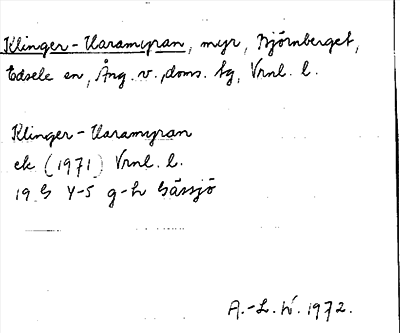 Klinger-Haramyran, myr, Björnberget,
Edsele sn, Ång. v. doms. tg, Vrnl. l.
Klinger-Haramyran
ek (1971) Vrnl. l.
19 G 4-5 g-h Gässjö
A.-L. W. 1972.